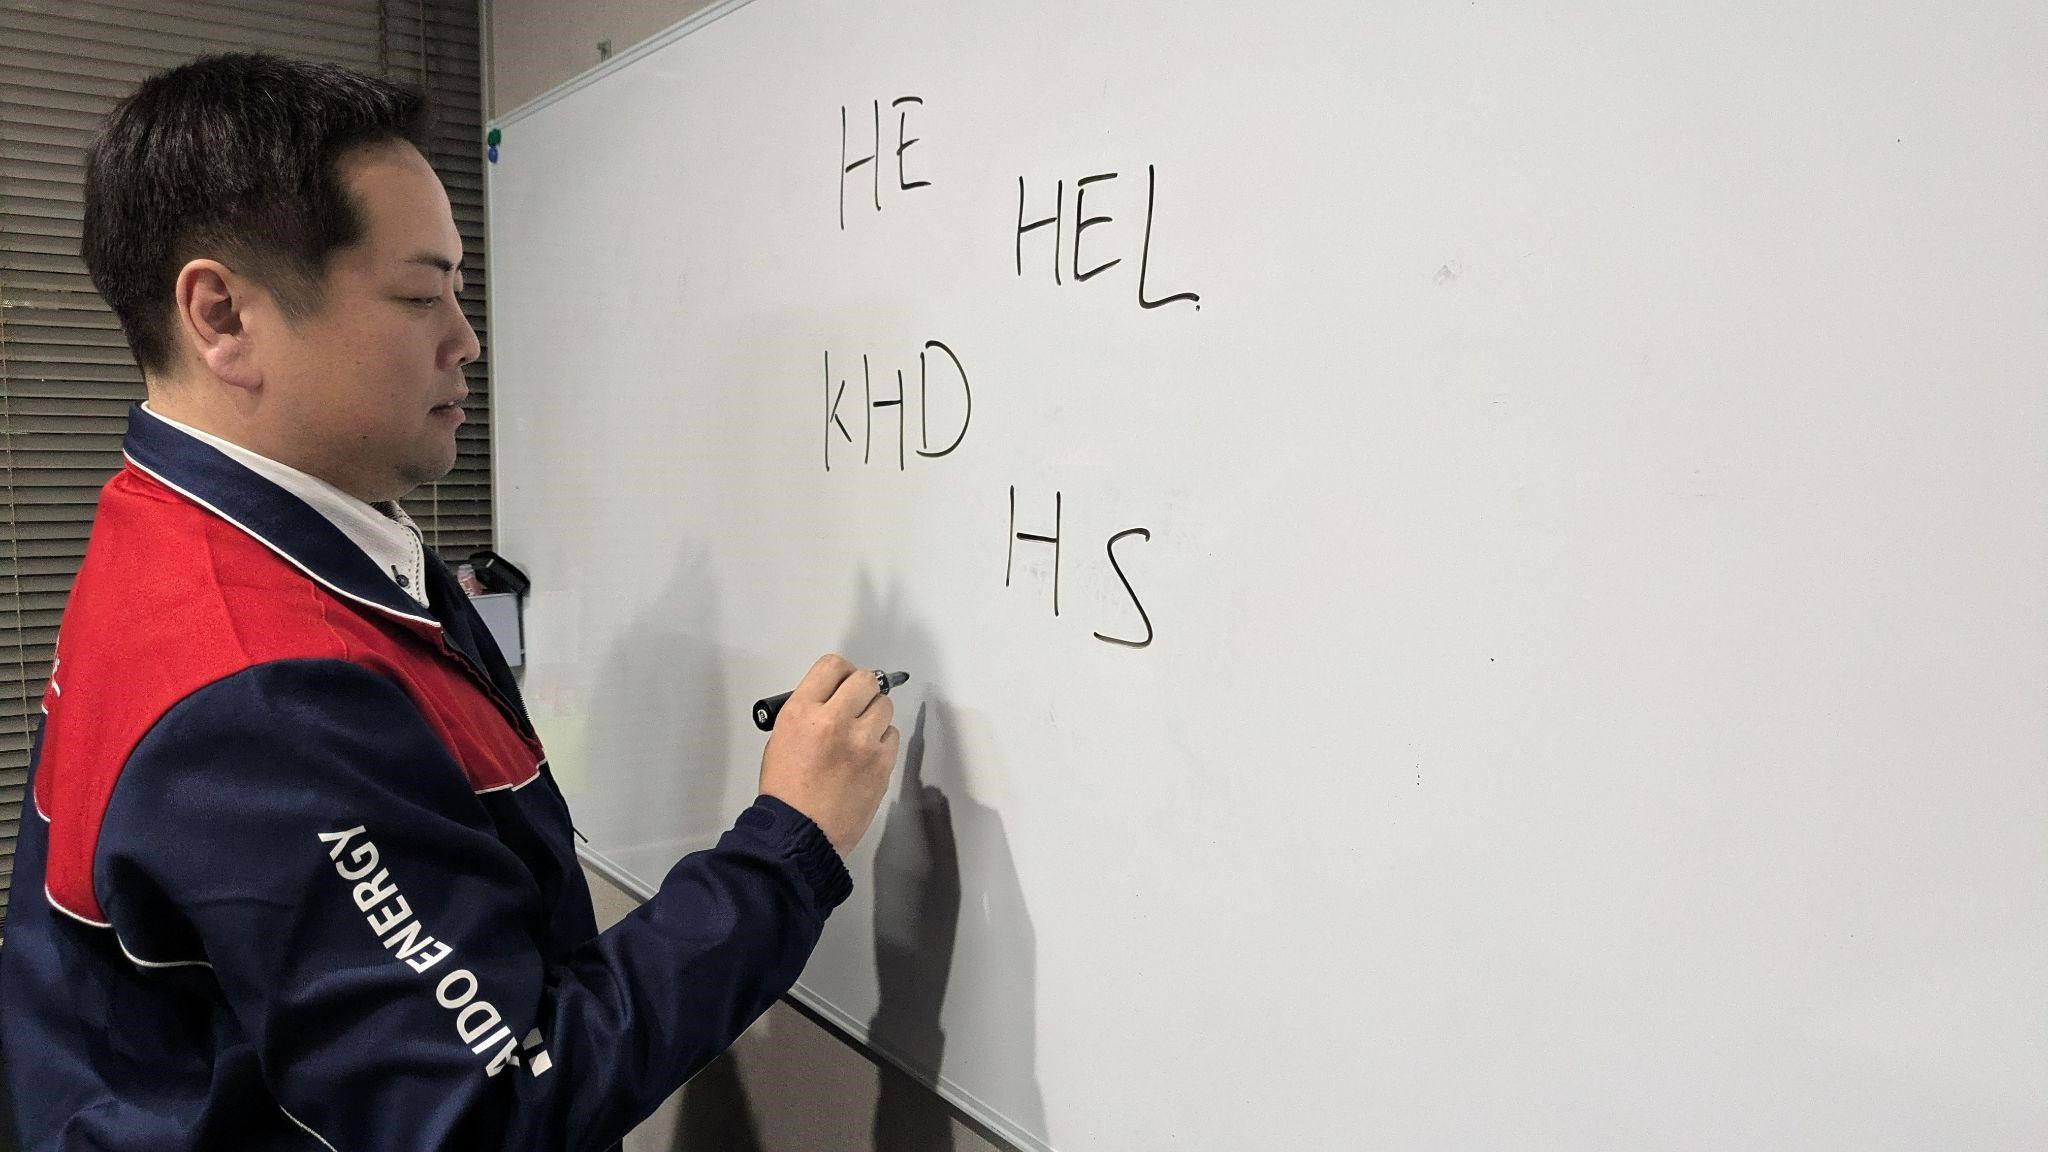 HE
HEL
KHD
HS
AIDO ENERGY